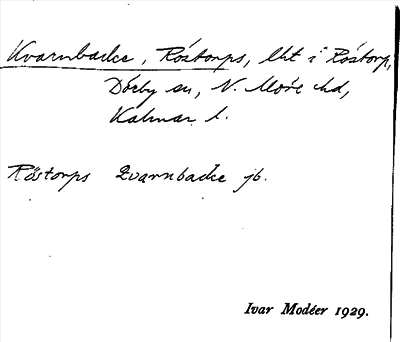 Kvarnbacke, Röstorps, lht i Röstorp,
Dörby sn, N. Möre hd,
Kalmar l.
Röstorps Qvarnbacke jb.
Ivar Modéer 1929.